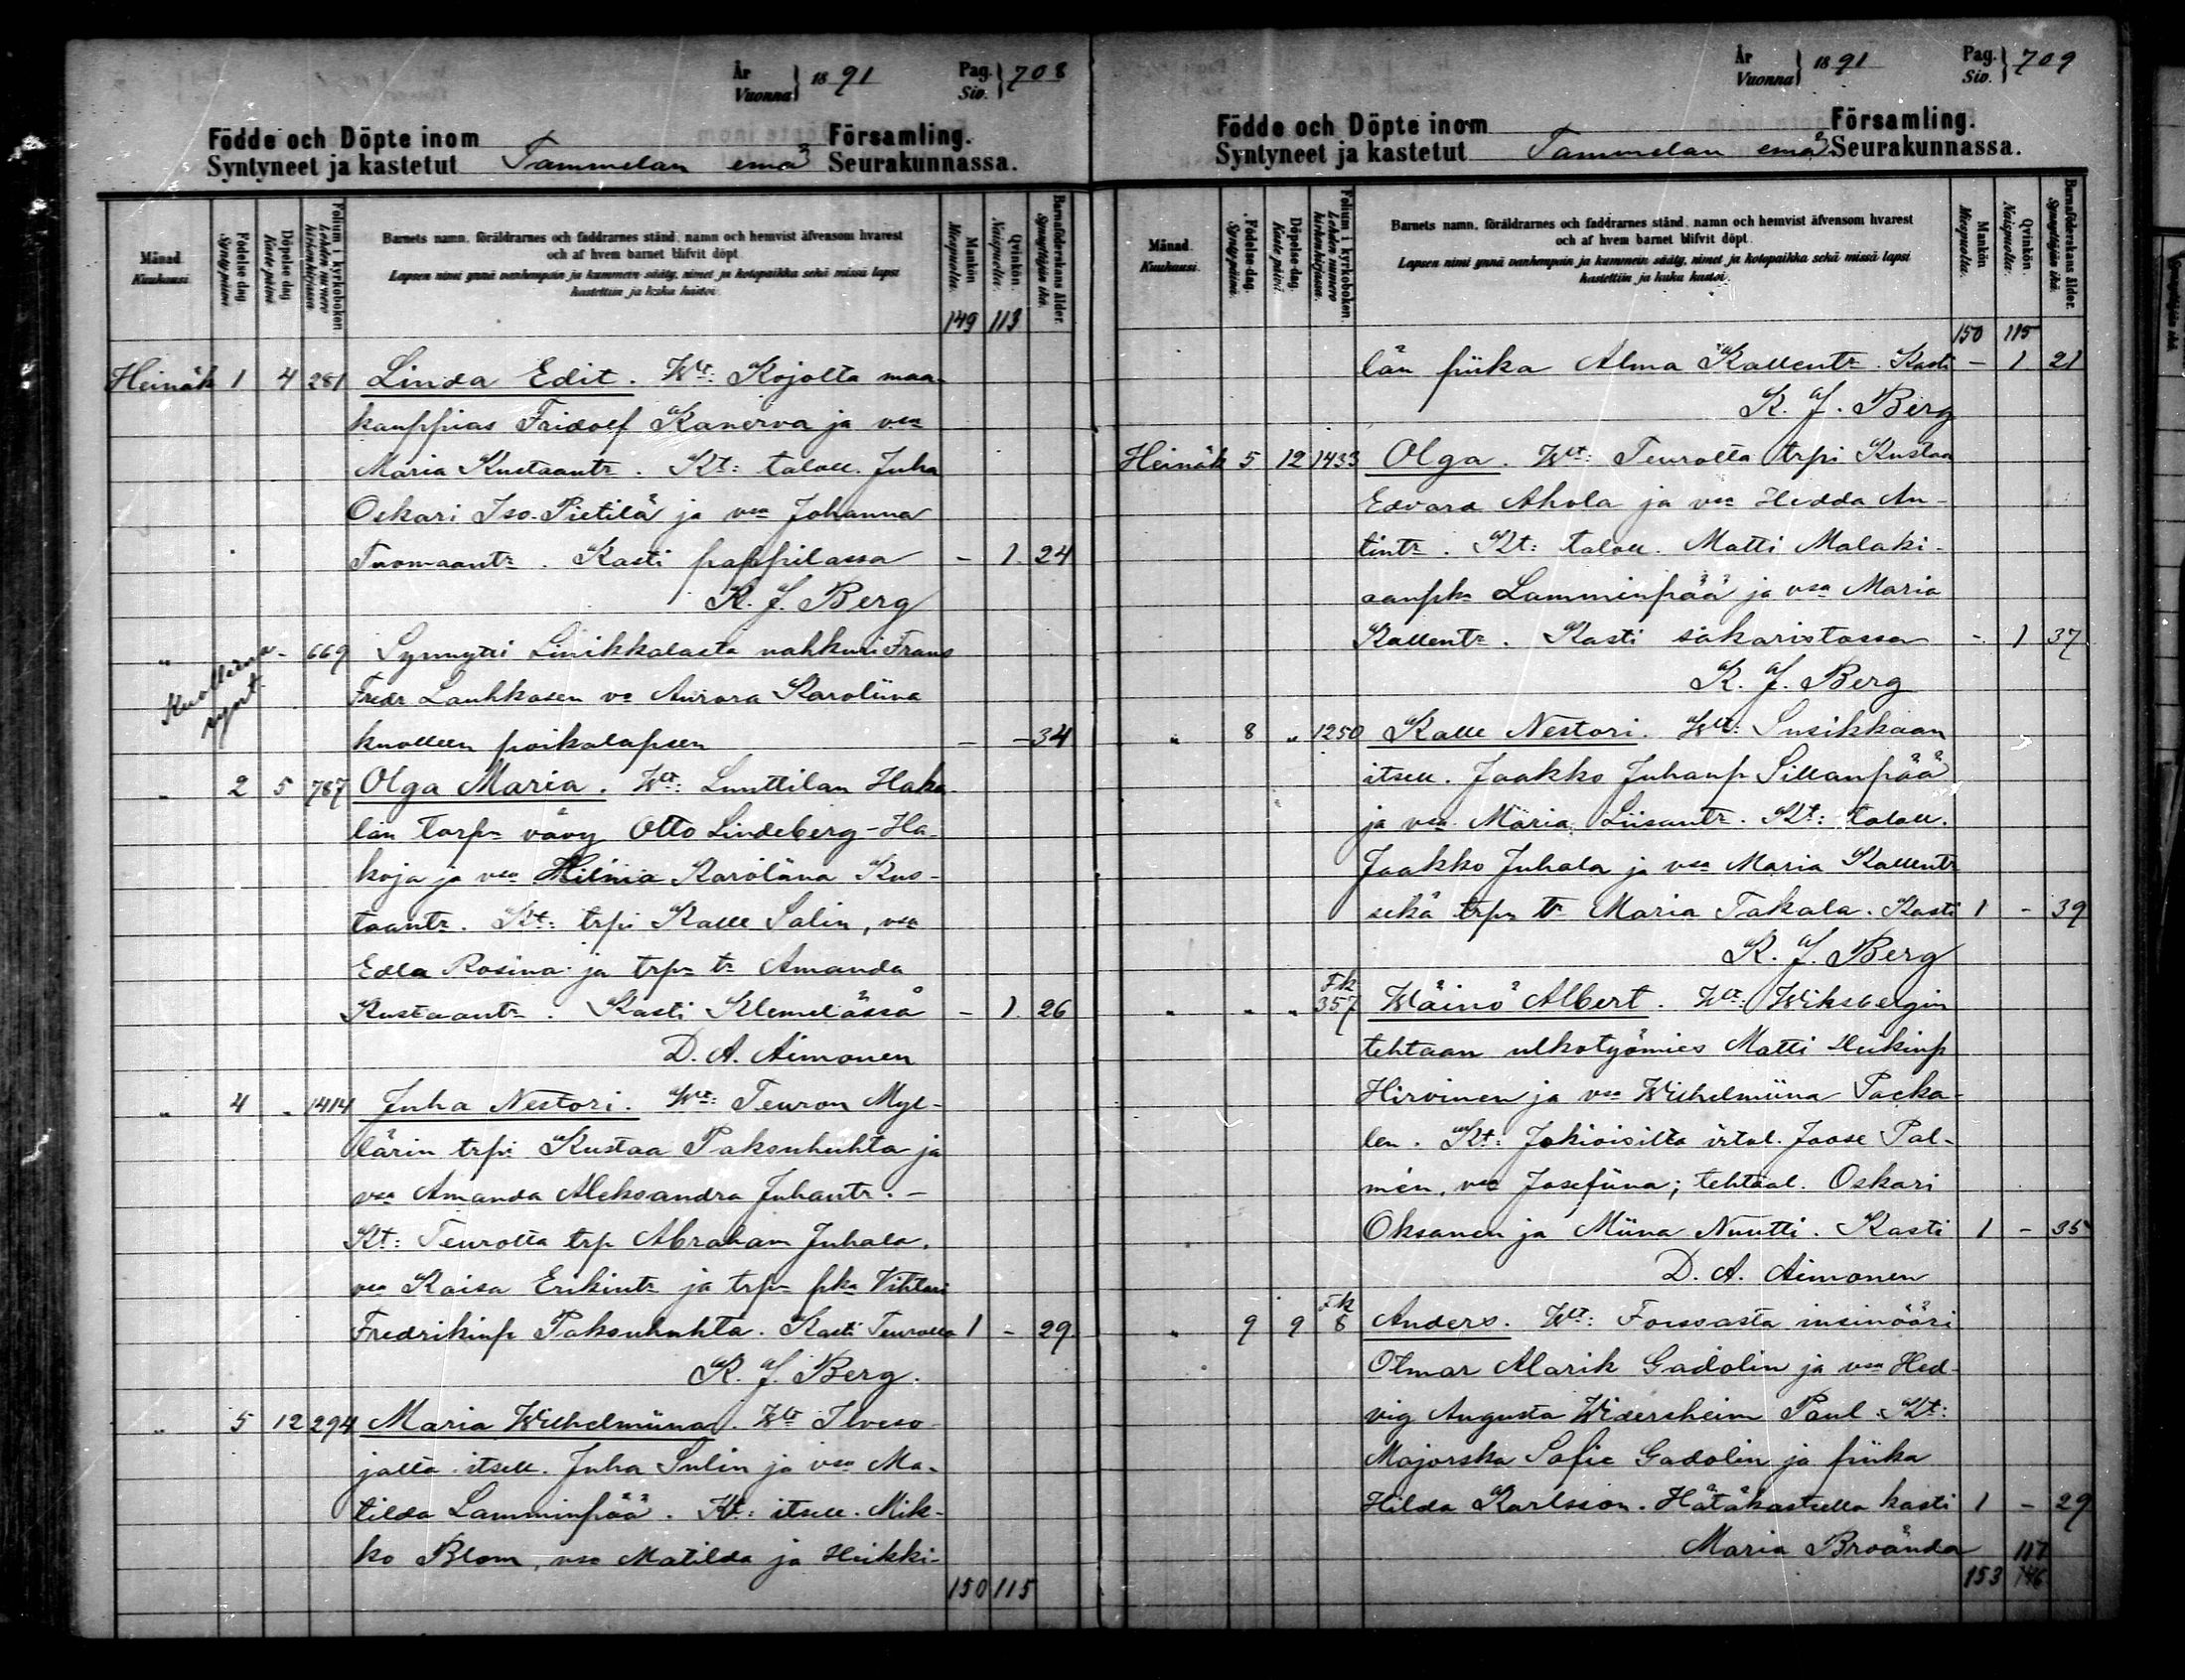 År
Vuonna } 1891
Pag.
Siv. } 708
Födde och Döpte inom
Syntyneet ja kastetut Tammelan emä
Församling.
Seurakunnassa.
Månad
Kuukausi.
Födelse dag.
Syntypäivä.
Döpelse dag
Kaste päivä
Folium i kyrkoboken
Lehden numero kirkonkirjassa.
Barnets namn, föräldrarnes och faddrarnes stånd, namn och hemvist äfvensom hvarest
och af hvem barnet blifvit döpt.
Lapsen nimi ynnä vanhempain ja kummein sääty, nimet ja kotopaikka sekä missä lapsi
kastettiin ja kuka kastoi.
Mankön
Miespuolta.
Qvinkön.
Naispuolta.
Barnaföderskans ålder.
Synnyttäjän ikä.
149 113
Heinäk 1 4 281 Linda Edit. Wt: Kojolta maa-
kauppias Fridolf Kanerva ja vsa
Maria Kustaantr. Kt: taloll. Juha
Oskari Iso-Pietilä ja vsa Johanna
Tuomaantr. Kasti pappilassa - 1 24
K. J. Berg
" Kuollena synt. - 669 Synnytti Linikkalasta nahkuri Frans
Fredr Lauhkosen vo Aurora Karoliina
kuolleen poikalapsen - - 34
" 2 5 787 Olga Maria. Wt: Lunttilan Haka-
län torpn vävy Otto Lindeberg-Ha-
koja ja vsa Hilma Karoliina Kus-
taantr. Kt: trpi Kalle Salin, vsa
Edla Rosina ja trpn tr Amanda
Kustaantr. Kasti Klemelässä - 1 26
D. A. Aimonen
" 4 " 1414 Juha Nestori. Wt: Teuron Myl-
lärin trpi Kustaa Paksuhuhta ja
vsa Amanda Aleksandra Juhantr. -
Kt: Teurolta trp Abraham Juhala,
vsa Kaisa Erkintr ja trpn pka Vihtori
Fredrikinp Paksuhuhta. Kasti Teurolla 1 - 29
K. J. Berg.
" 5 12 294 Maria Wilhelmiina. Wt Ilveso-
jalta itsell. Juha Sulin ja vsa Ma-
tilda Lamminpää. Kt: itsell. Mik-
ko Blom, vsa Matilda ja Heikki-
150 115
År
Vuonna } 1891
Pag.
Siv. } 709
Födde och Döpte inom
Syntyneet ja kastetut Tammelan emä
Församling.
Seurakunnassa.
Månad
Kuukausi.
Födelse dag.
Syntypäivä.
Döpelse dag.
Kaste päivä
Folium i kyrkoboken.
Lehden numero kirkonkirjassa.
Barnets namn, föräldrarnes och faddrarnes stånd, namn och hemvist äfvensom hvarest
och af hvem barnet blifvit döpt.
Lapsen nimi ynnä vanhempain ja kummein sääty, nimet ja kotopaikka sekä missä lapsi
kastettiin ja kuka kastoi.
Mankön
Miespuolta.
Qvinkön
Naispuolta.
Barnaföderskans ålder.
Synnyttäjän ikä.
150 115
län piika Alma Kallentr. Kasti - 1 21
K. J. Berg
Heinäk 5 12 1433 Olga. Wt: Teurolta trpi Kustaa
Edvard Ahola ja vsa Hedda An-
tintr. Kt: taloll. Matti Malaki-
aanpka Lamminpää ja vsa Maria
Kallentr. Kasti säkaristossa - 1 37
K. J. Berg
" 8 " 1250 Kalle Nestori. Wt: Susikkaan
itsell. Jaakko Juhanp Sillanpää
ja vsa Maria Liisantr. Kt: taloll.
Jaakko Juhala ja vsa Maria Kallentr
sekä trpn tr Maria Takala. Kasti 1 - 39
K. J. Berg
" " " Fk 357 Wäinö Albert. Wt: Wiksbergin
tehtaan ulkotyömies Matti Heikinp
Hirvinen ja vsa Wilhelmiina Packa-
len. Kt: Jokioisilta irtol. Joose Pal-
mén, vsa Josefiina; tehtaal. Oskari
Oksanen ja Miina Nuutti. Kasti 1 - 35
D. A. Aimonen
" 9 9 Fk 8 Anders. Wt: Forssasta insinööri
Otmar Alarik Gadolin ja vsa Hed-
vig Augusta Widersheim Paul. Kt:
Majorska Sofie Gadolin ja piika
Hilda Karlsson. Hätäkasteella kasti 1 - 29
Maria Broända
117
153